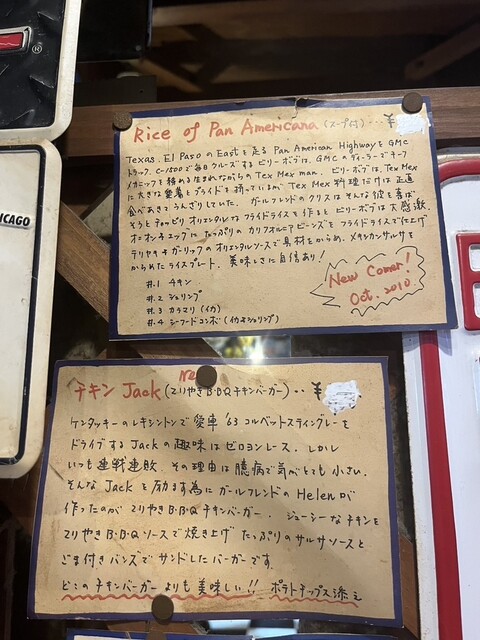 ®
CHICAGO
Rice of Pan Americana (スープ付)・・・¥
Texas. El Pasoの Eastを走る Pan American Highwayを GMC
トラック. C-1500で毎日クルーズする ビリーボブは、GMCのディーラーでチーフ
メカニックを務める生まれながらの Tex Mex man. ビリーボブは、Tex Mex
に大きな愛着とプライドを持っているが Tex Mex 料理だけは正直
食べあきてうんざりしていた. ガールフレンドのクリスはそんな彼を喜ば
そうと オリエンタルなフライドライスを作ると ビリーボブは大感激.
オニオンチョップに たっぷりの カリフォルニアビーンズを フライドライスで仕上げ
テリヤキ&ガーリックの オリエンタルソースで具材をからめ、メキシカンサルサを
からめたライスプレート. 美味しさに自信あり!
New Comer!
Oct. 2010.
#.1 チキン
#.2 シュリンプ
#.3 カラマリ (イカ)
#.4 シーフードコンボ (イカ&シュリンプ)
チキン Jack (てりやきB・B・Qチキンバーガー)・・¥
ケンタッキーのレキシントンで愛車 '63 コルベットスティングレーを
ドライブする Jackの趣味はゼロヨンレース. しかし
いつも連戦連敗 その理由は臆病で気がとても小さい.
そんな Jackを励ます為にガールフレンドの Helenが
作ったのが てりやきB・B・Qチキンバーガー ジューシーなチキンを
てりやきB・B・Qソースで焼き上げ たっぷりのサルサソースと
ごま付きバンズでサンドしたバーガーです.
どこのチキンバーガーよりも美味しい!! ポテトチップス添え